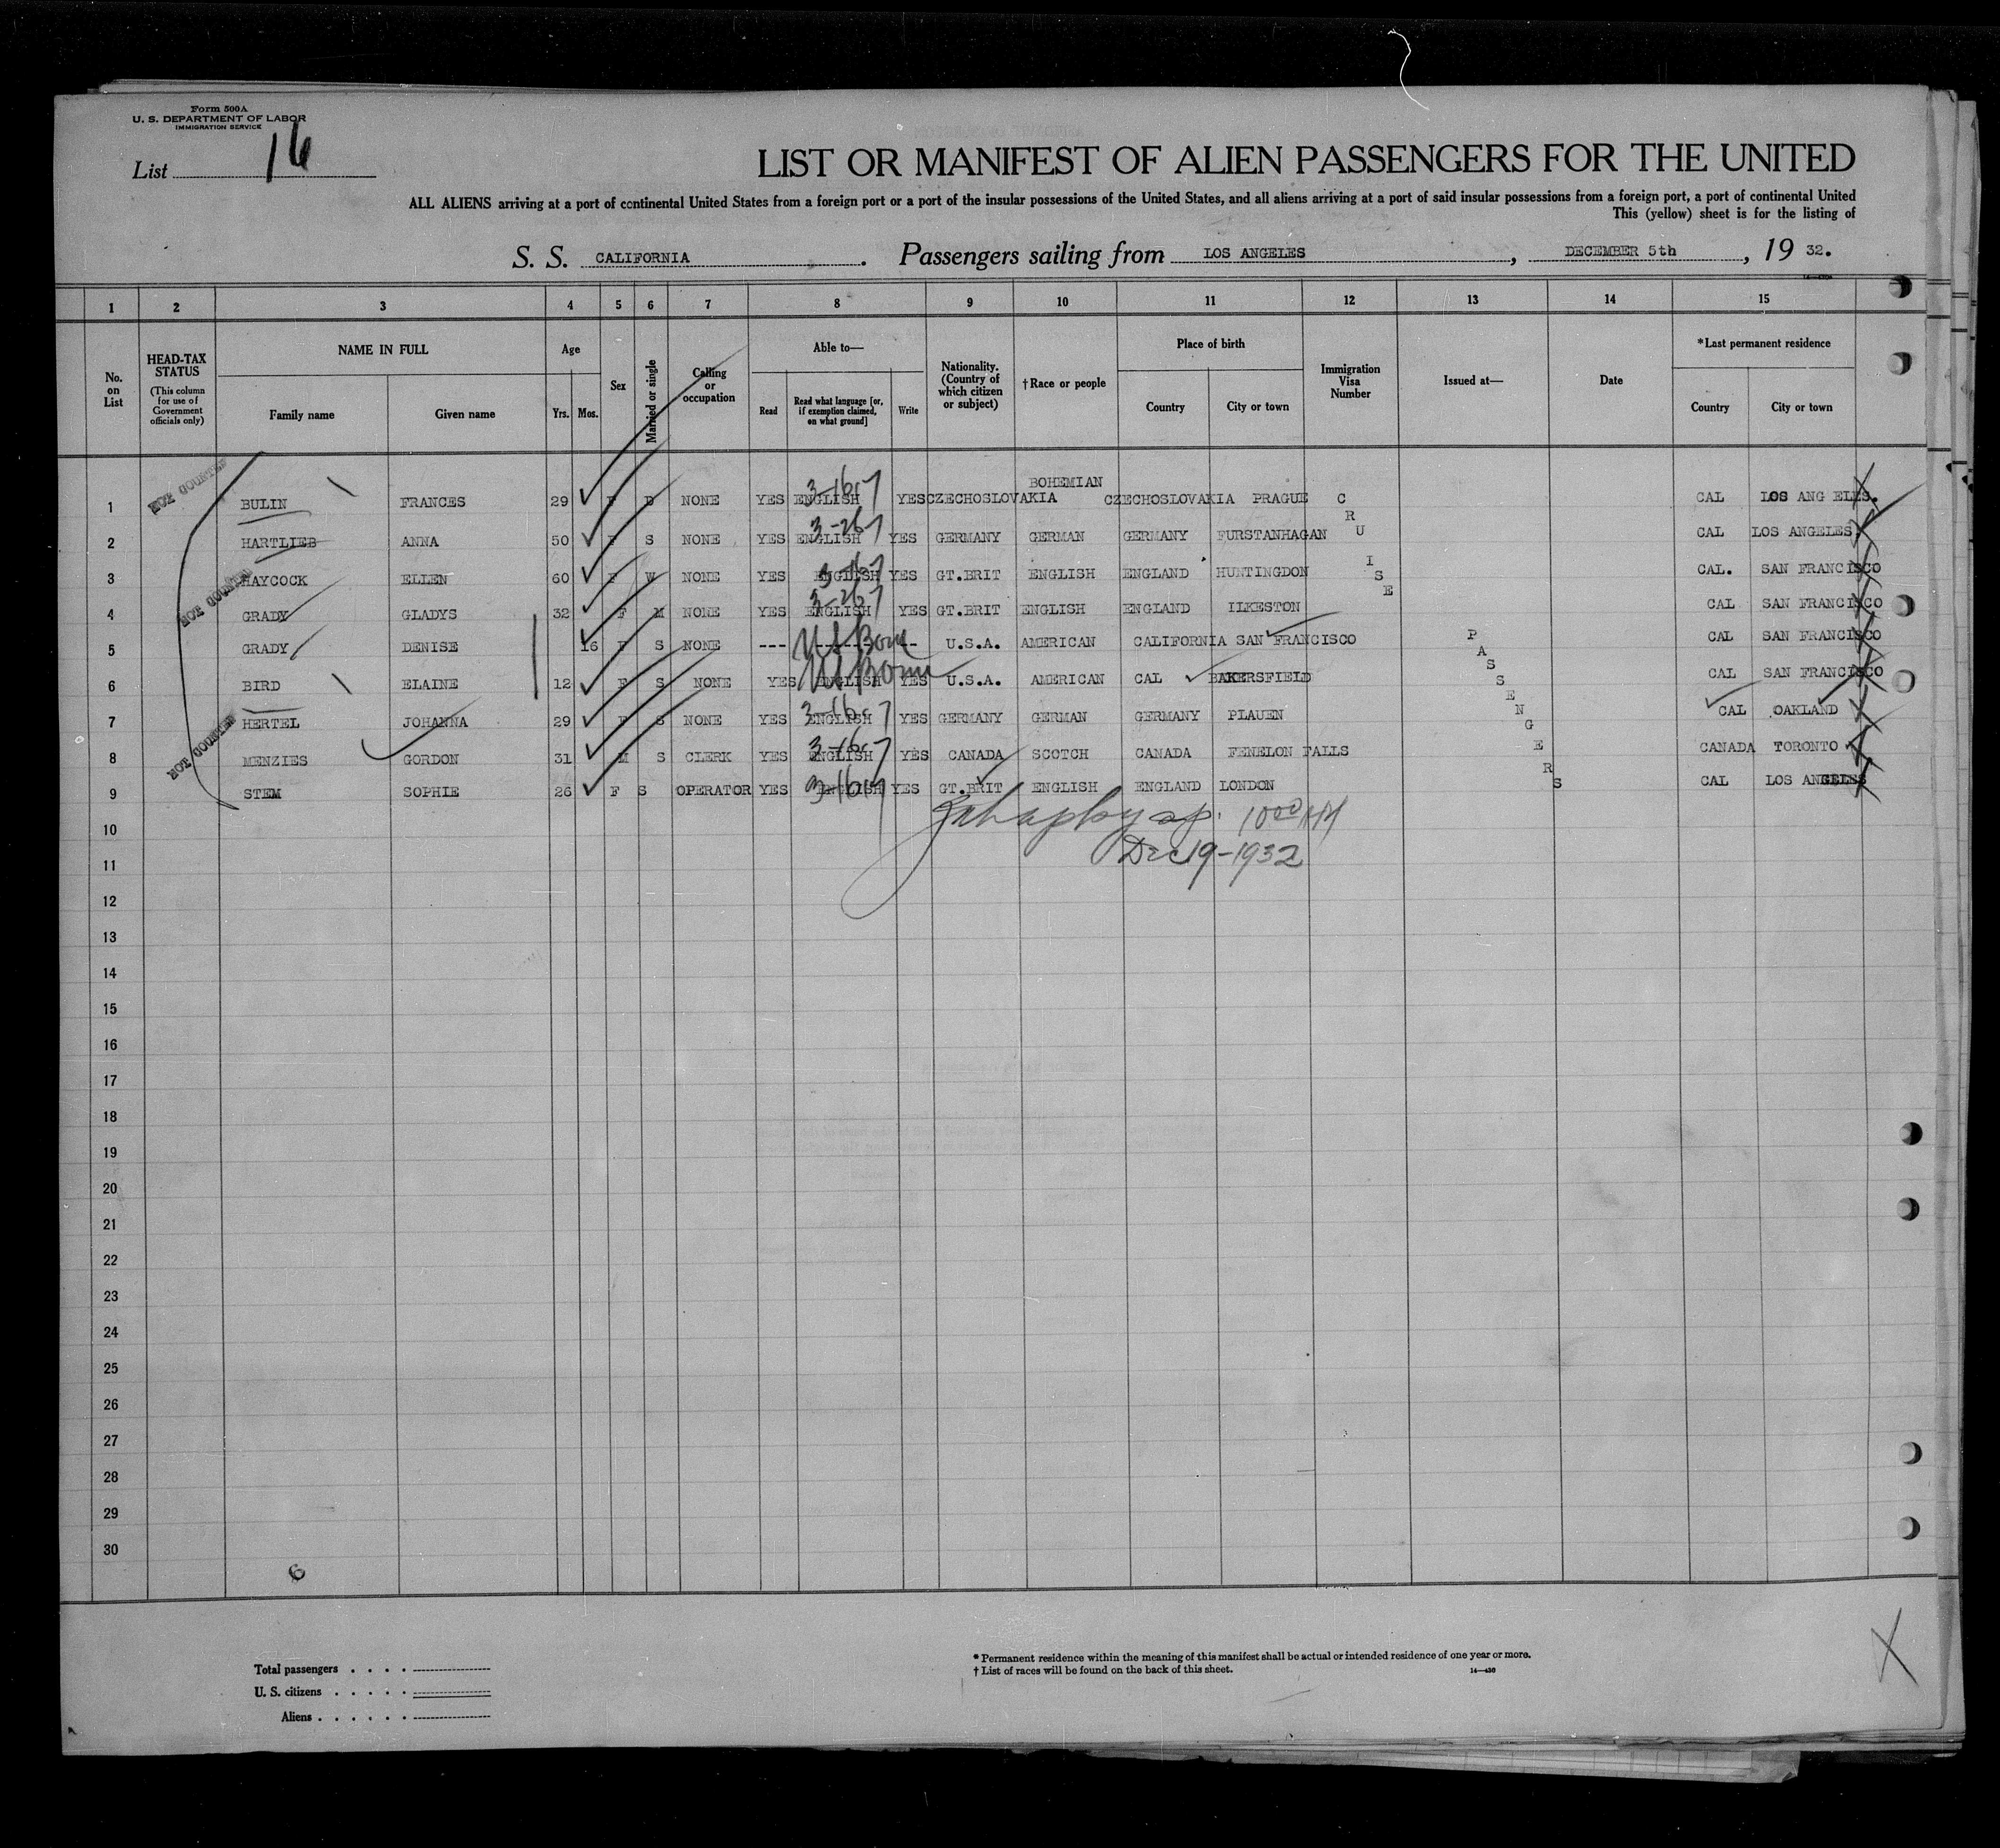 Form 500A
U. S. DEPARTMENT OF LABOR
IMMIGRATION SERVICE
List 16
LIST OR MANIFEST OF ALIEN PASSENGERS FOR THE UNITED
ALL ALIENS arriving at a port of continental United States from a foreign port or a port of the insular possessions of the United States, and all aliens arriving at a port of said insular possessions from a foreign port, a port of continental United
This (yellow) sheet is for the listing of
S. S. CALIFORNIA. Passengers sailing from LOS ANGELES, DECEMBER 5th, 19 32.
1 2 3 4 5 6 7 8 9 10 11 12 13 14 15
No. on List
HEAD-TAX STATUS (This column for use of Government officials only)
NAME IN FULL
Family name Given name
Age
Yrs. Mos.
Sex
Married or single
Calling or occupation
Able to—
Read Read what language [or, if exemption claimed, on what ground] Write
Nationality. (Country of which citizen or subject)
†Race or people
Place of birth
Country City or town
Immigration Visa Number
Issued at—
Date
*Last permanent residence
Country City or town
NOT COUNTED
1 BULIN FRANCES 29 F D NONE YES ENGLISH YES CZECHOSLOVAKIA BOHEMIAN CZECHOSLOVAKIA PRAGUE CAL LOS ANG ELES.
2 HARTLIEB ANNA 50 F S NONE YES ENGLISH YES GERMANY GERMAN GERMANY FURSTANHAGAN CAL LOS ANGELES
3 HAYCOCK ELLEN 60 F W NONE YES ENGLISH YES GT.BRIT ENGLISH ENGLAND HUNTINGDON CAL. SAN FRANCISCO
NOT COUNTED
4 GRADY GLADYS 32 F M NONE YES ENGLISH YES GT.BRIT ENGLISH ENGLAND ILKESTON CAL SAN FRANCISCO
5 GRADY DENISE 16 F S NONE --- US Born -- U.S.A. AMERICAN CALIFORNIA SAN FRANCISCO CAL SAN FRANCISCO
6 BIRD ELAINE 12 F S NONE YES ENGLISH US Born YES U.S.A. AMERICAN CAL BAKERSFIELD CAL SAN FRANCISCO
7 HERTEL JOHANNA 29 F S NONE YES ENGLISH YES GERMANY GERMAN GERMANY PLAUEN CAL OAKLAND
NOT COUNTED
8 MENZIES GORDON 31 M S CLERK YES ENGLISH YES CANADA SCOTCH CANADA FENELON FALLS CANADA TORONTO
9 STEM SOPHIE 26 F S OPERATOR YES ENGLISH YES GT.BRIT ENGLISH ENGLAND LONDON CAL LOS ANGELES
CRUISE
PASSENGERS
10
Dec 19-1932
11
12
13
14
15
16
17
18
19
20
21
22
23
24
25
26
27
28
29
30
6
Total passengers . . . .
U. S. citizens . . . . .
Aliens . . . . . .
* Permanent residence within the meaning of this manifest shall be actual or intended residence of one year or more.
† List of races will be found on the back of this sheet.
14—430